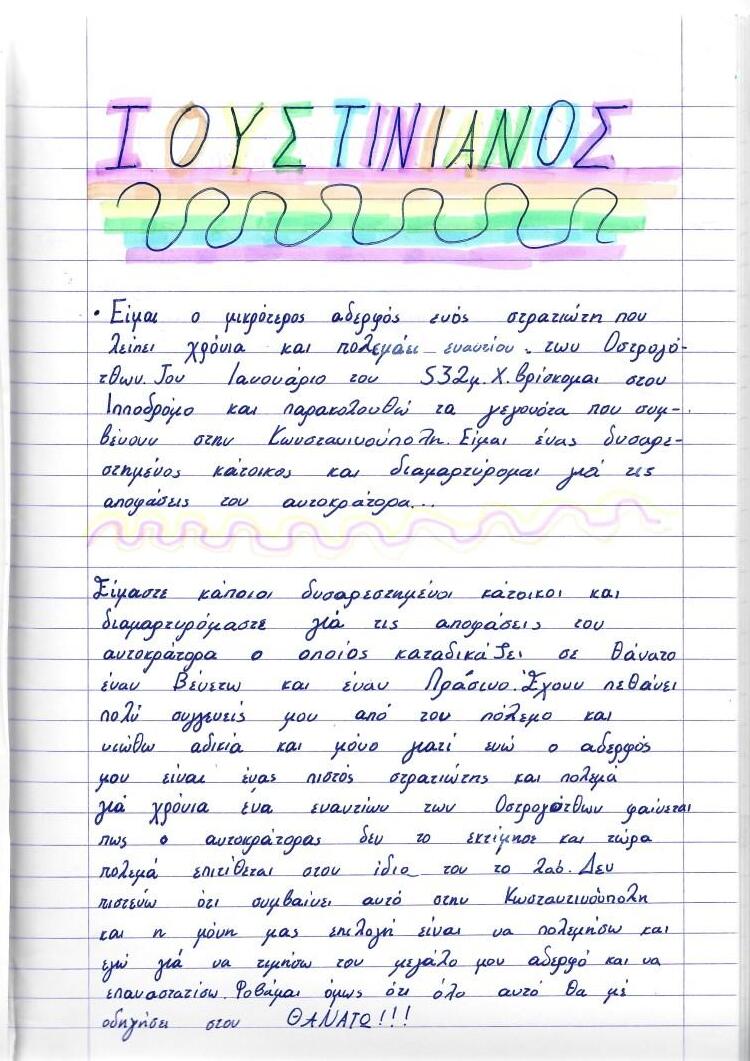 ΙΟΥΣΤΙΝΙΑΝΟΣ
• Είμαι ο μικρότερος αδερφός ενός στρατιώτη που
λείπει χρόνια και πολεμάει εναντίον των Οστρογό-
τθων. Τον Ιανουάριο του 532μ.Χ. βρίσκομαι στον
Ιπποδρόμο και παρακολουθώ τα γεγονότα που συμ-
βένουν στην Κωνσταντινούπολη. Είμαι ένας δυσαρε-
στημένος κάτοικος και διαμαρτύρομαι γιά τις
αποφάσεις του αυτοκράτορα...
Είμαστε κάποιοι δυσαρεστημένοι κάτοικοι και
διαμαρτυρόμαστε γιά τις αποφάσεις του
αυτοκράτορα ο οποίος καταδικάζει σε θάνατο
έναν Βένετω και έναν Πράσινο. Έχουν πεθάνει
πολύ συγγενείς μου από τον πόλεμο και
νιώθω αδικιά και μόνο γιατί ενώ ο αδερφός
μου είναι ένας πιστός στρατιώτης και πολεμά
γιά χρόνια ένα εναντίων των Οστρογότθων φαίνεται
πως ο αυτοκράτορας δεν το εκτίμησε και τώρα
πολεμά επιτίθεται στον ίδιο του το λαό. Δεν
πιστεύω ότι συμβαίνει αυτό στην Κωσταντινούπολη
και η μόνη μας επιλογή είναι να πολεμήσω και
εγώ γιά να τιμήσω τον μεγάλο μου αδερφό και να
επαναστατίσω. Φοβάμαι όμως ότι όλο αυτό θα μέ
οδηγήσει στον ΘΑΝΑΤΩ!!!